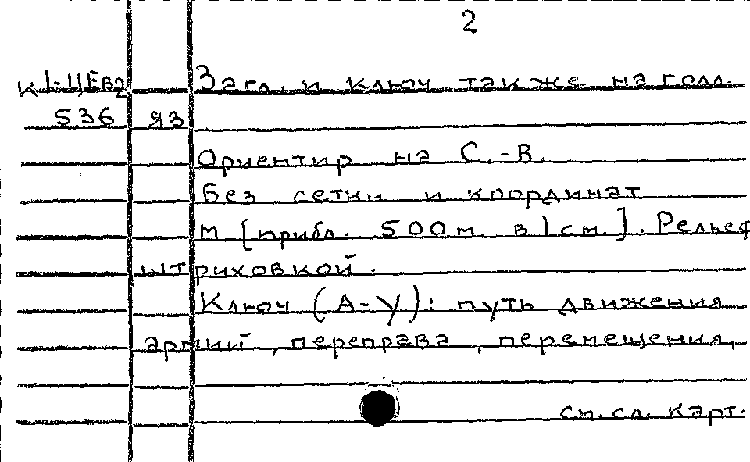 2
К 1-ЦЕв2 Загл. и ключ также на голл.
536 яз
Ориентир на С.-В.
Без сетки и координат
М [прибл. 500 м. в 1 см.]. Рельеф
штриховкой.
Ключ (А-У): путь движения
армий, переправа, перемещения,
см. сл. карт.